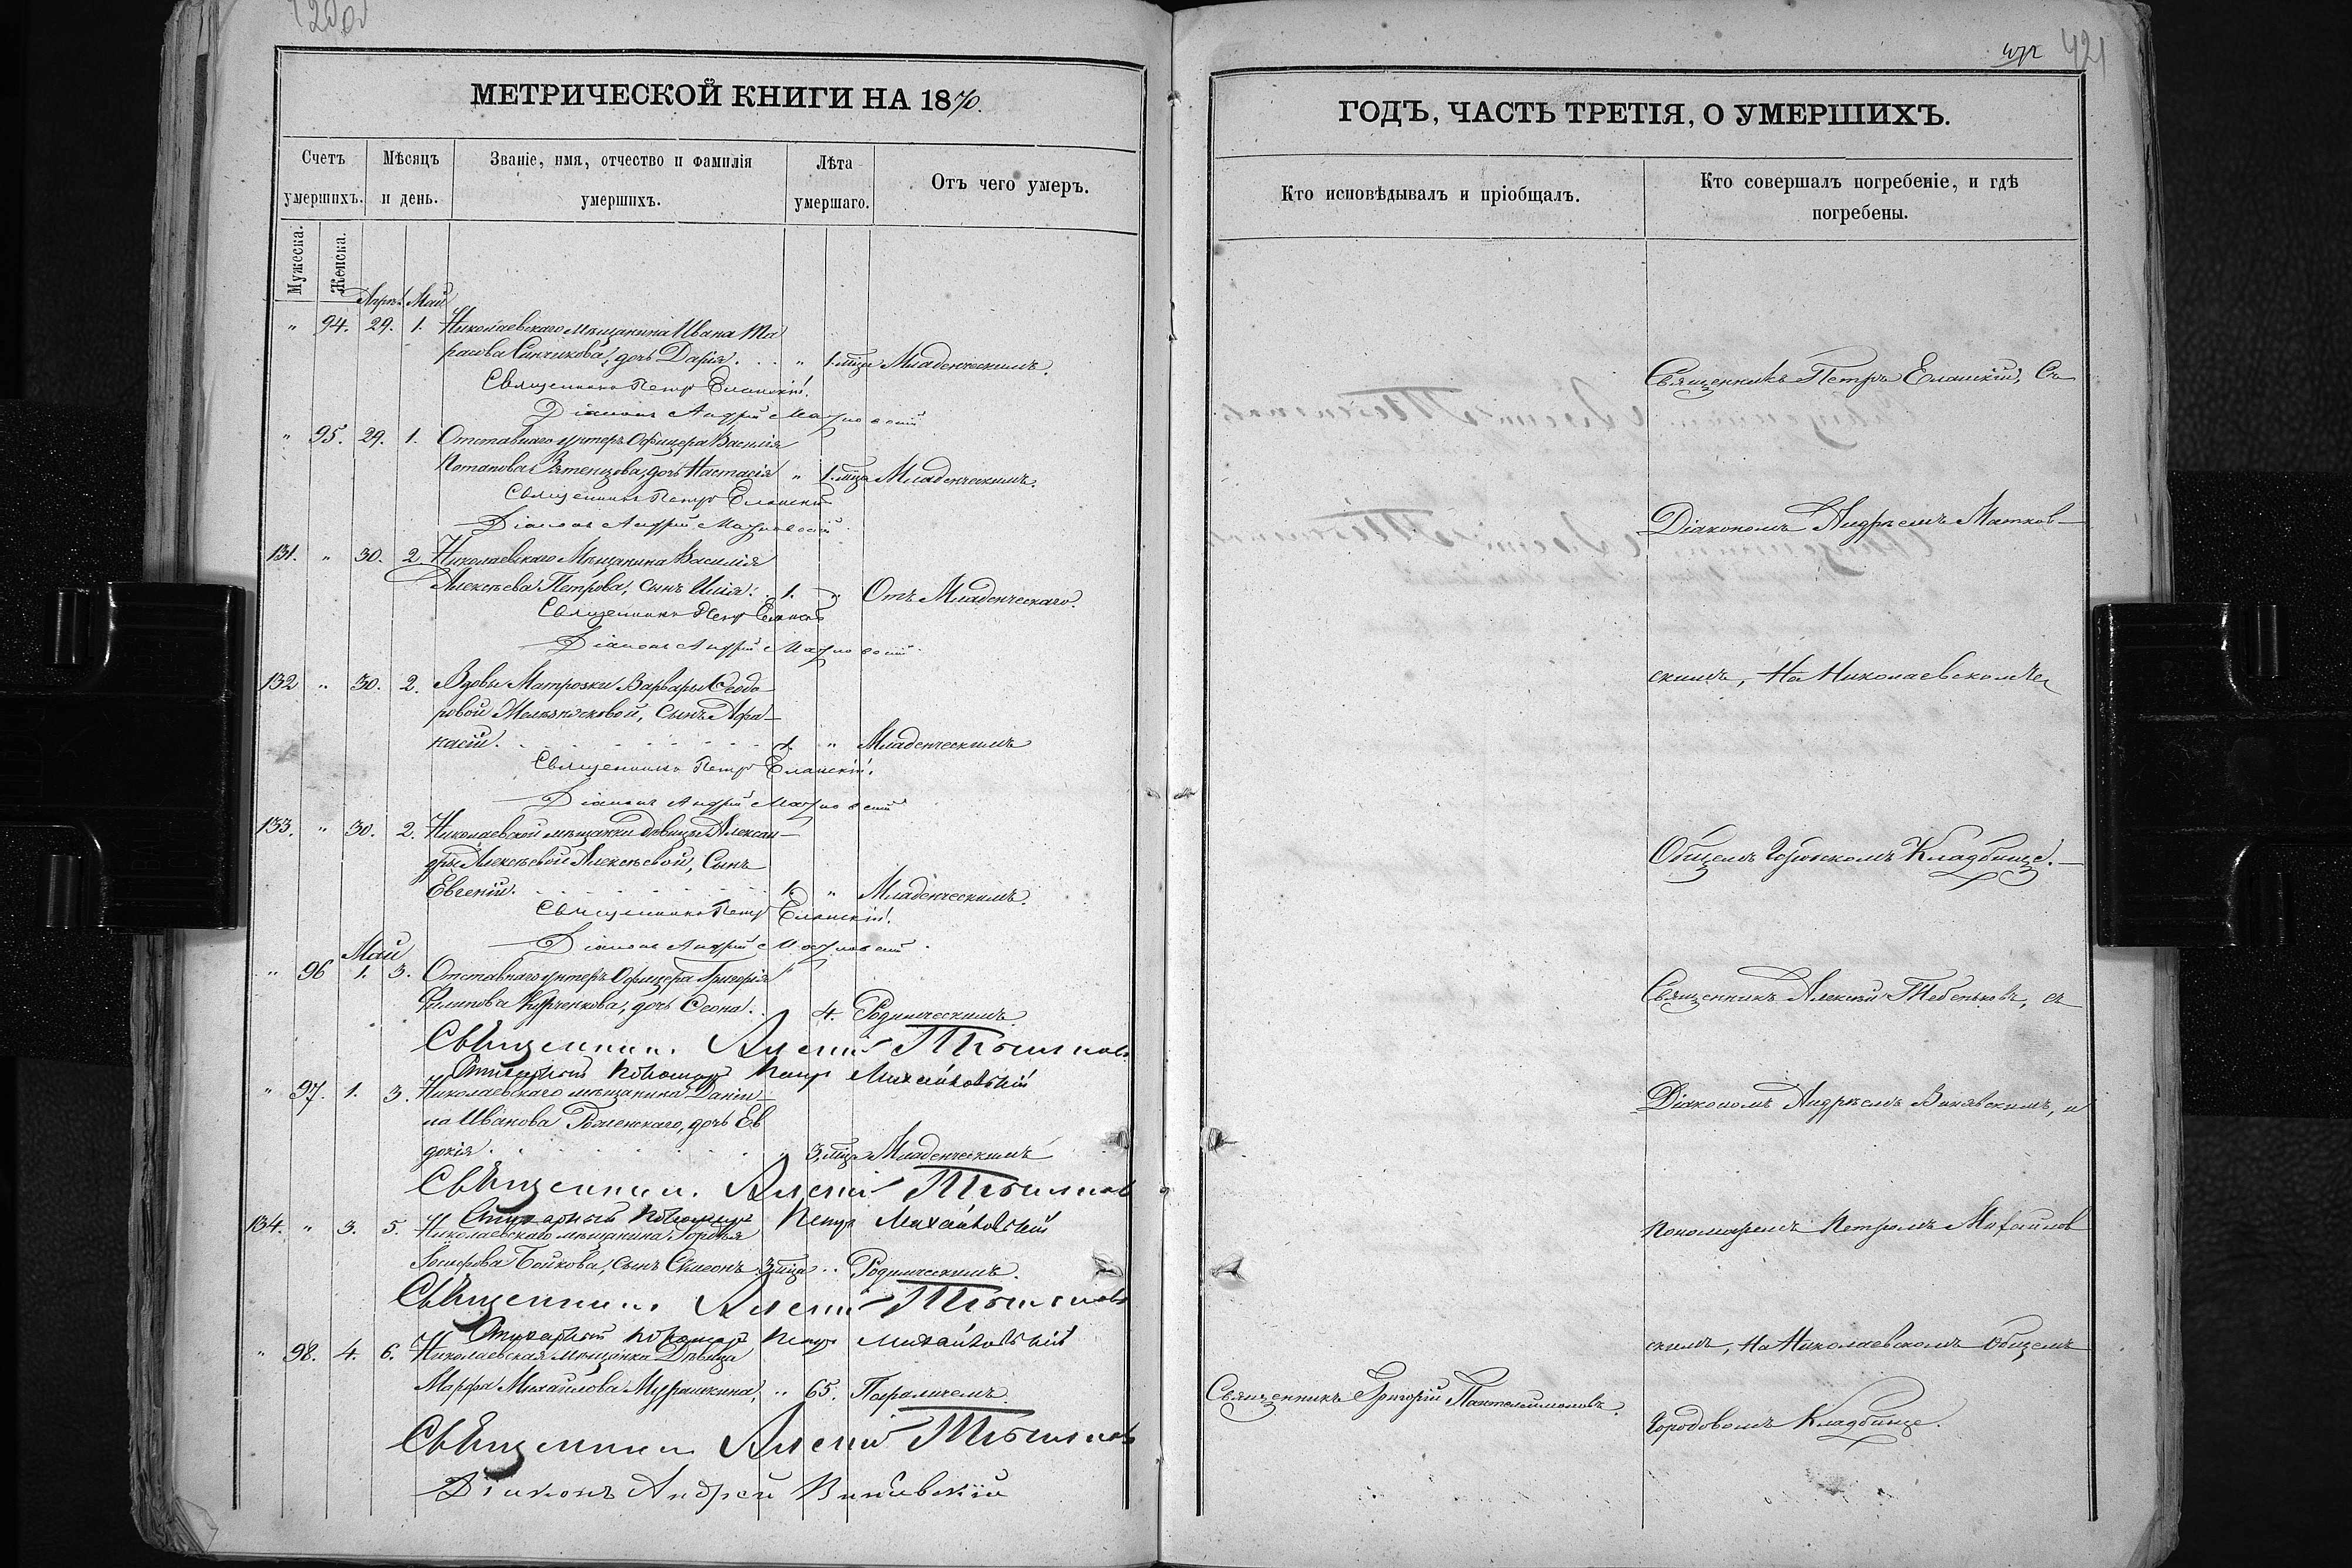 421
МЕТРИЧЕСКОЙ КНИГИ НА 1870.
ГОДЪ, ЧАСТЬ ТРЕТІЯ, О УМЕРШИХЪ.
Счетъ умершихъ.
Мѣсяцъ и день.
Званіе, имя, отчество и фамилія умершихъ.
Лѣта умершаго.
Отъ чего умеръ.
Кто исповѣдывалъ и пріобщалъ.
Кто совершалъ погребеніе, и гдѣ погребены.
Мужеска.
Женска.
Апрѣл. Май
" 94. 29. 1. Николаевскаго мѣщанина Ивана Та
расова дочь Дарія. " 1. мца Младенческимъ.
Священникъ Петръ Еланскій.
Діаконъ Андрей
" 95. 29. 1. Отставнаго унтеръ Офицера Василія
Потапова дочь Настасія " 1. мца Младенческимъ.
Священникъ Петръ Еланскій
Діаконъ Андрей
131. " 30. 2. Николаевскаго Мѣщанина Василія
Алексѣева Петрова, сынъ Илія. 1. " Отъ Младенческаго.
Священникъ Петръ Еланскій
Діаконъ Андрей
132 " 30. 2. Вдовы Матроски Варвары Ѳеодо
ровой сынъ Афа-
насій. 1. " Младенческимъ
Священникъ Петръ Еланскій.
Діаконъ Андрей
133. " 30. 2. Николаевской мѣщанки дѣвицы Алексан-
дры Алексѣевой Алексѣевой, Сынъ
Евгеній. 1. " Младенческимъ.
Священникъ Петръ Еланскій.
Діаконъ Андрей
Май
" 96 1. 3. Отставнаго унтеръ Офицера Григорія
Филипова дочь 4. Родимческимъ
Священникъ Алексій Тебеньковъ
Пономарь Петръ Михайловскій
" 97. 1. 3. Николаевскаго мѣщанина Дани-
ла Иванова дочь Ев
докія. " 3. мца Младенческимъ
Священникъ Алексій Тебеньковъ
Пономарь Петръ Михайловскій
134. " 3. 5. Николаевскаго мѣщанина
Бойкова, сынъ Симеонъ 3 мца " Родимческимъ.
Священникъ Алексій Тебеньковъ
Пономарь Петръ Михайловскій
" 98. 4. 6. Николаевская Мѣщанка Дѣвица
Марфа Михайлова " 65. Параличемъ
Священникъ Алексій Тебеньковъ
Діаконъ Андрей Винявскій
Священникъ Григорій Пантелеимоновъ.
Священникъ Петръ Еланскій, Съ
Діакономъ Андреемъ Матков-
скимъ, На Николаевскомъ
Общемъ Городскомъ Кладбищѣ.-
Священникъ Алексѣй Тебеньковъ, съ
Діакономъ Андреемъ Винявскимъ, и
Пономаремъ Петромъ Михайлов
скимъ, На Николаевскомъ Общемъ
Городовомъ Кладбищѣ.